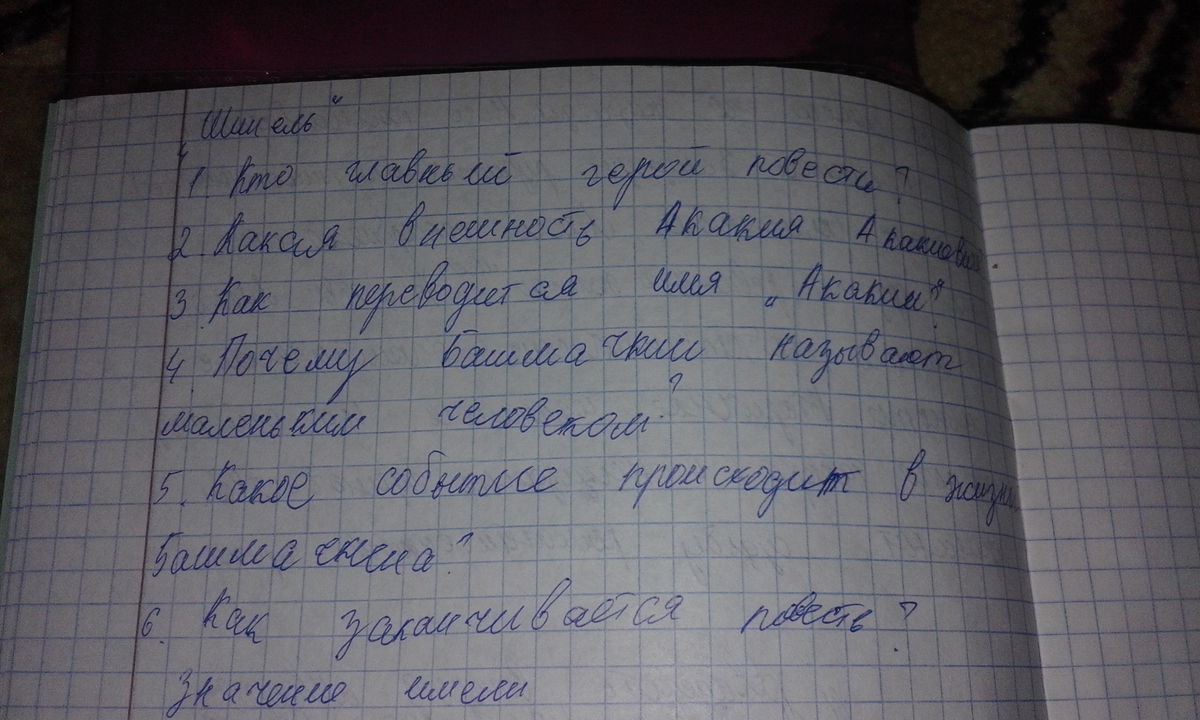 „Шинель"
1. Кто главный герой повести?
2. Какая внешность Акакия Акакиевича
3. Как переводится имя „Акакий"?
4. Почему Башмачкин называют
маленьким человеком?
5. Какое событие происходит в жизни
Башмачкина?
6. Как заканчивается повесть?
Значение имени